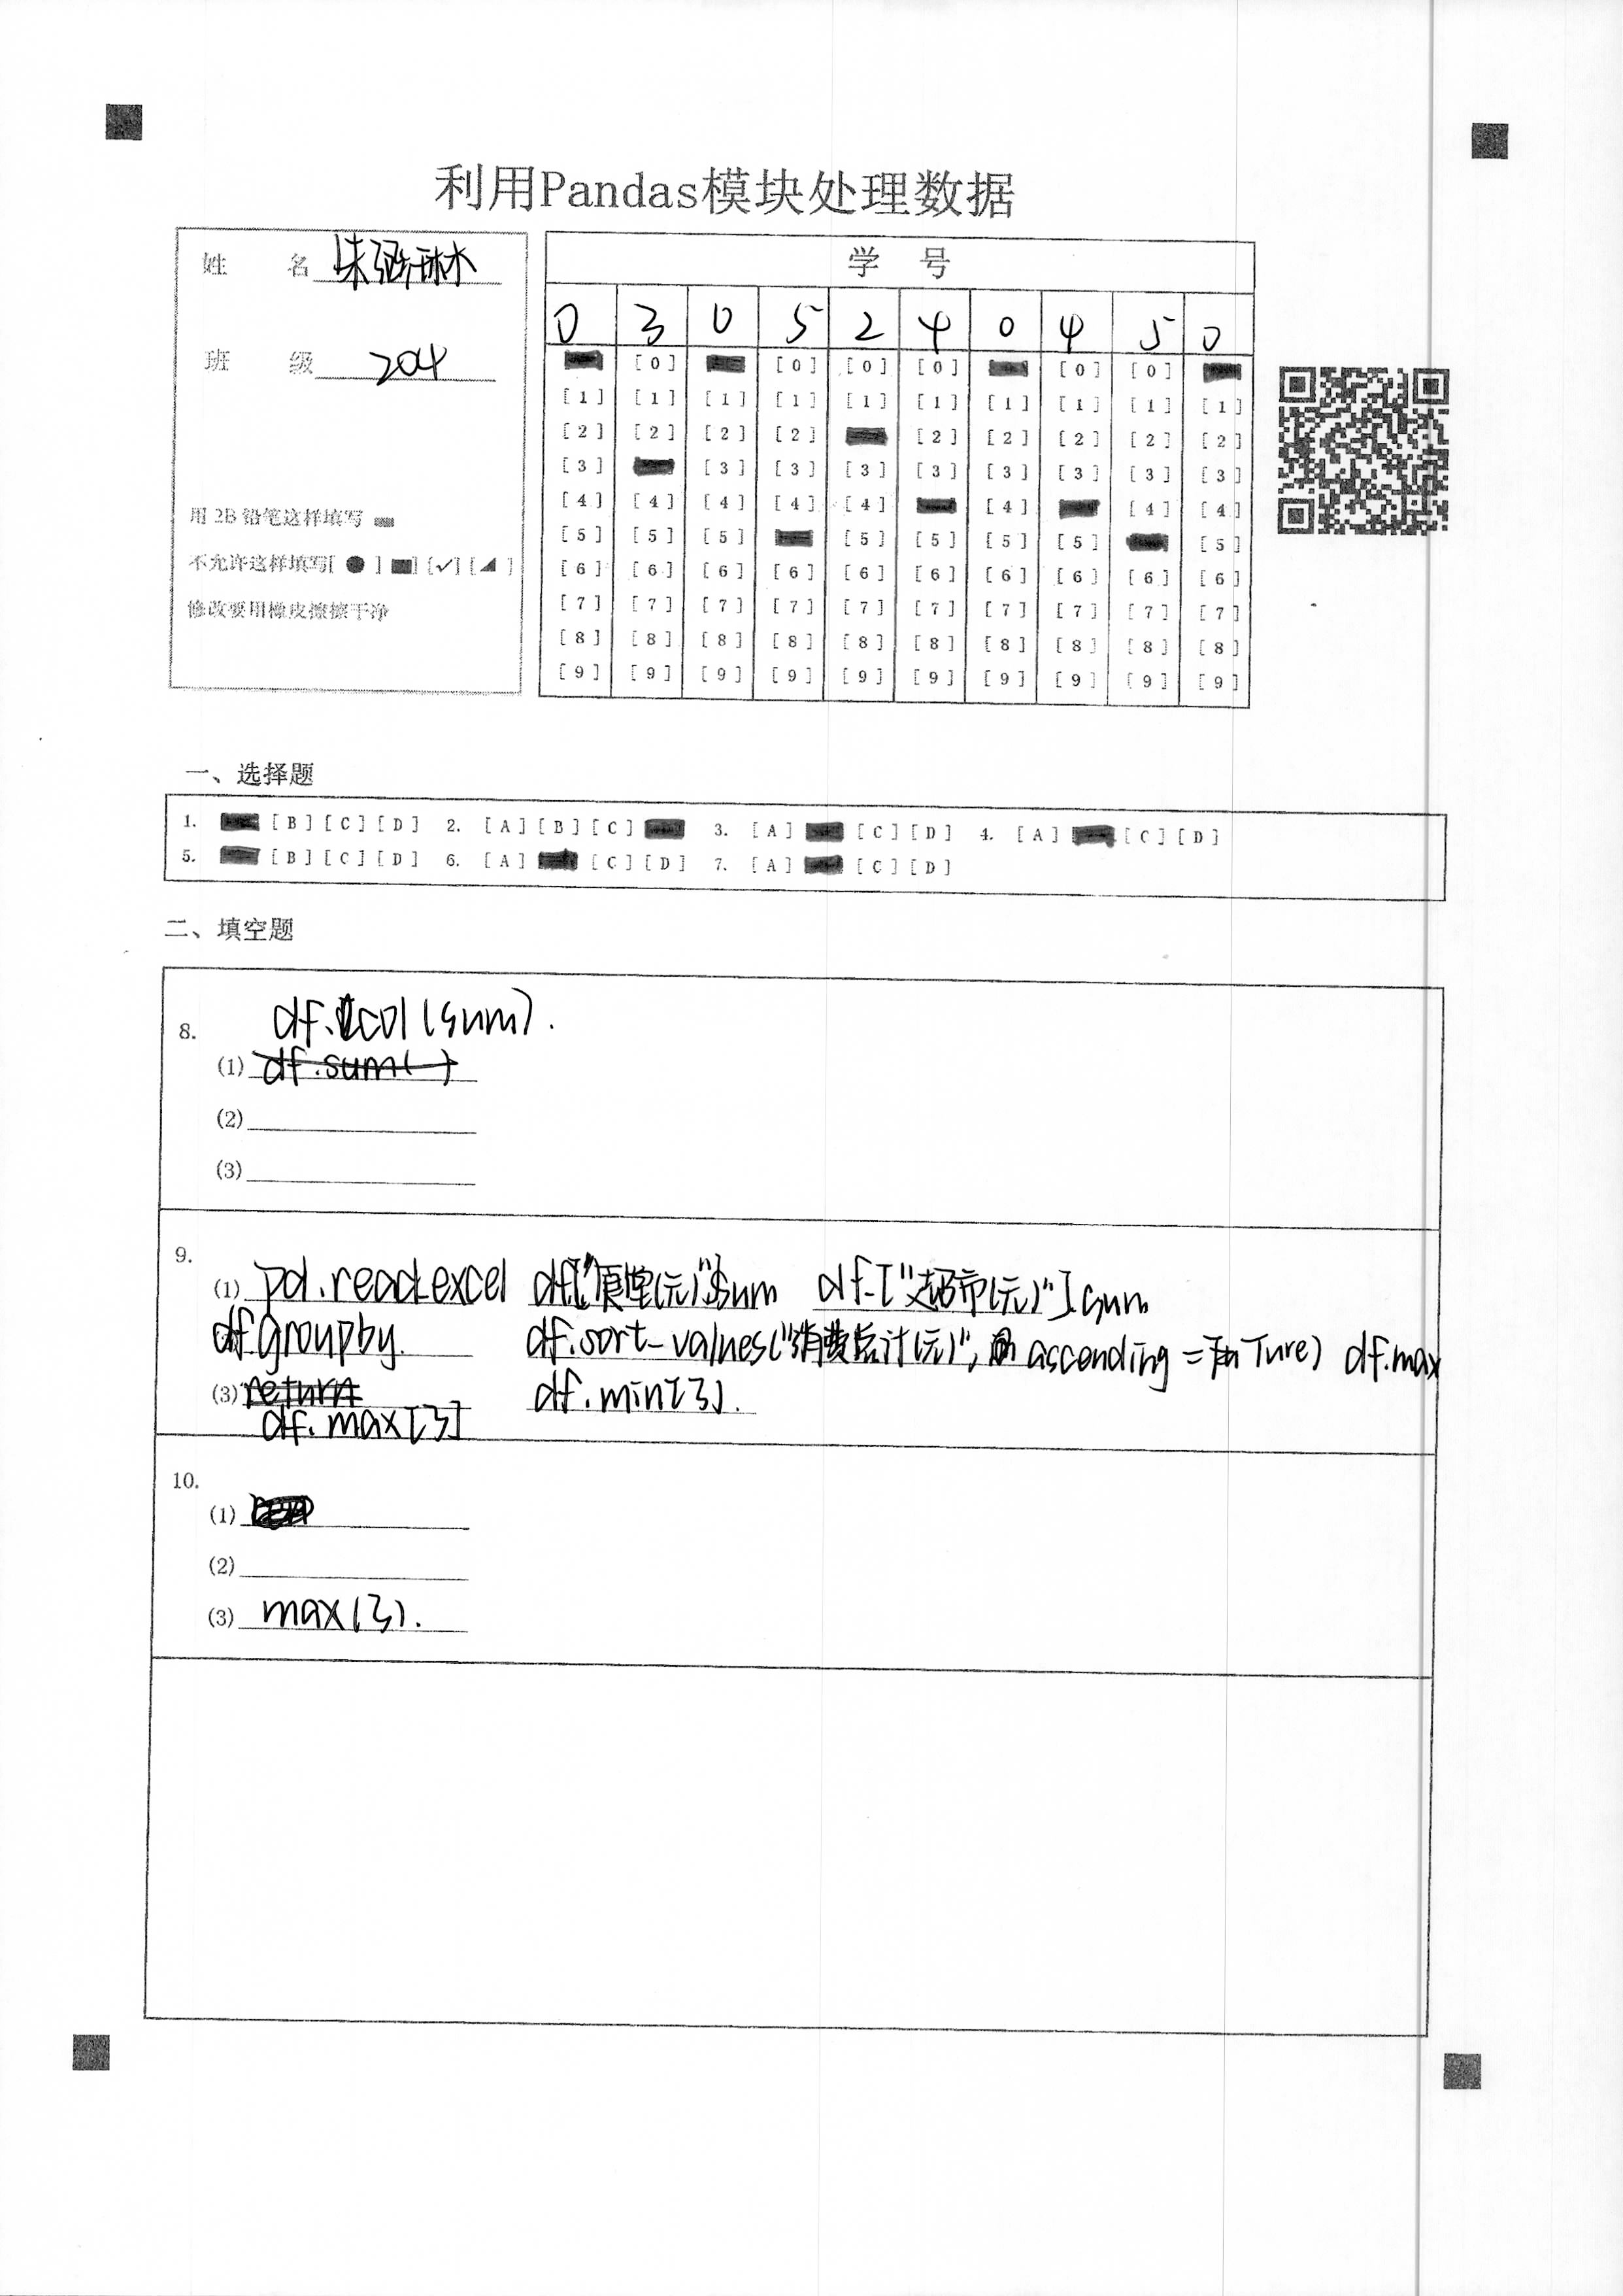 利用Pandas模块处理数据
姓 名
班 级 204
用 2B 铅笔这样填写
不允许这样填写[ ● ] [✓] [◢ ]
修改要用橡皮擦擦干净
学 号
0 3 0 5 2 4 0 4 5 0
[0] [0] [0] [0] [0] [0]
[1] [1] [1] [1] [1] [1] [1] [1] [1] [1]
[2] [2] [2] [2] [2] [2] [2] [2] [2]
[3] [3] [3] [3] [3] [3] [3] [3] [3]
[4] [4] [4] [4] [4] [4] [4] [4]
[5] [5] [5] [5] [5] [5] [5] [5]
[6] [6] [6] [6] [6] [6] [6] [6] [6] [6]
[7] [7] [7] [7] [7] [7] [7] [7] [7] [7]
[8] [8] [8] [8] [8] [8] [8] [8] [8] [8]
[9] [9] [9] [9] [9] [9] [9] [9] [9] [9]
一、选择题
1. [B] [C] [D] 2. [A] [B] [C] 3. [A] [C] [D] 4. [A] [C] [D]
5. [B] [C] [D] 6. [A] [C] [D] 7. [A] [C] [D]
二、填空题
8. df.col(sum).
(1) df.sum()
(2)
(3)
9.
(1) pd.read_excel df["食堂(元)"]sum df["超市(元)"].sum
df groupby. df.sort_values("消费总计(元)", ascending = Ture) df.max
(3) return df.min[3].
df.max[3]
10.
(1)
(2)
(3) max(3).